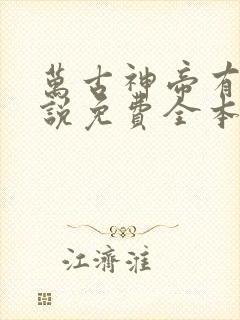 萬古神帝有
說免費全本
江濟淮